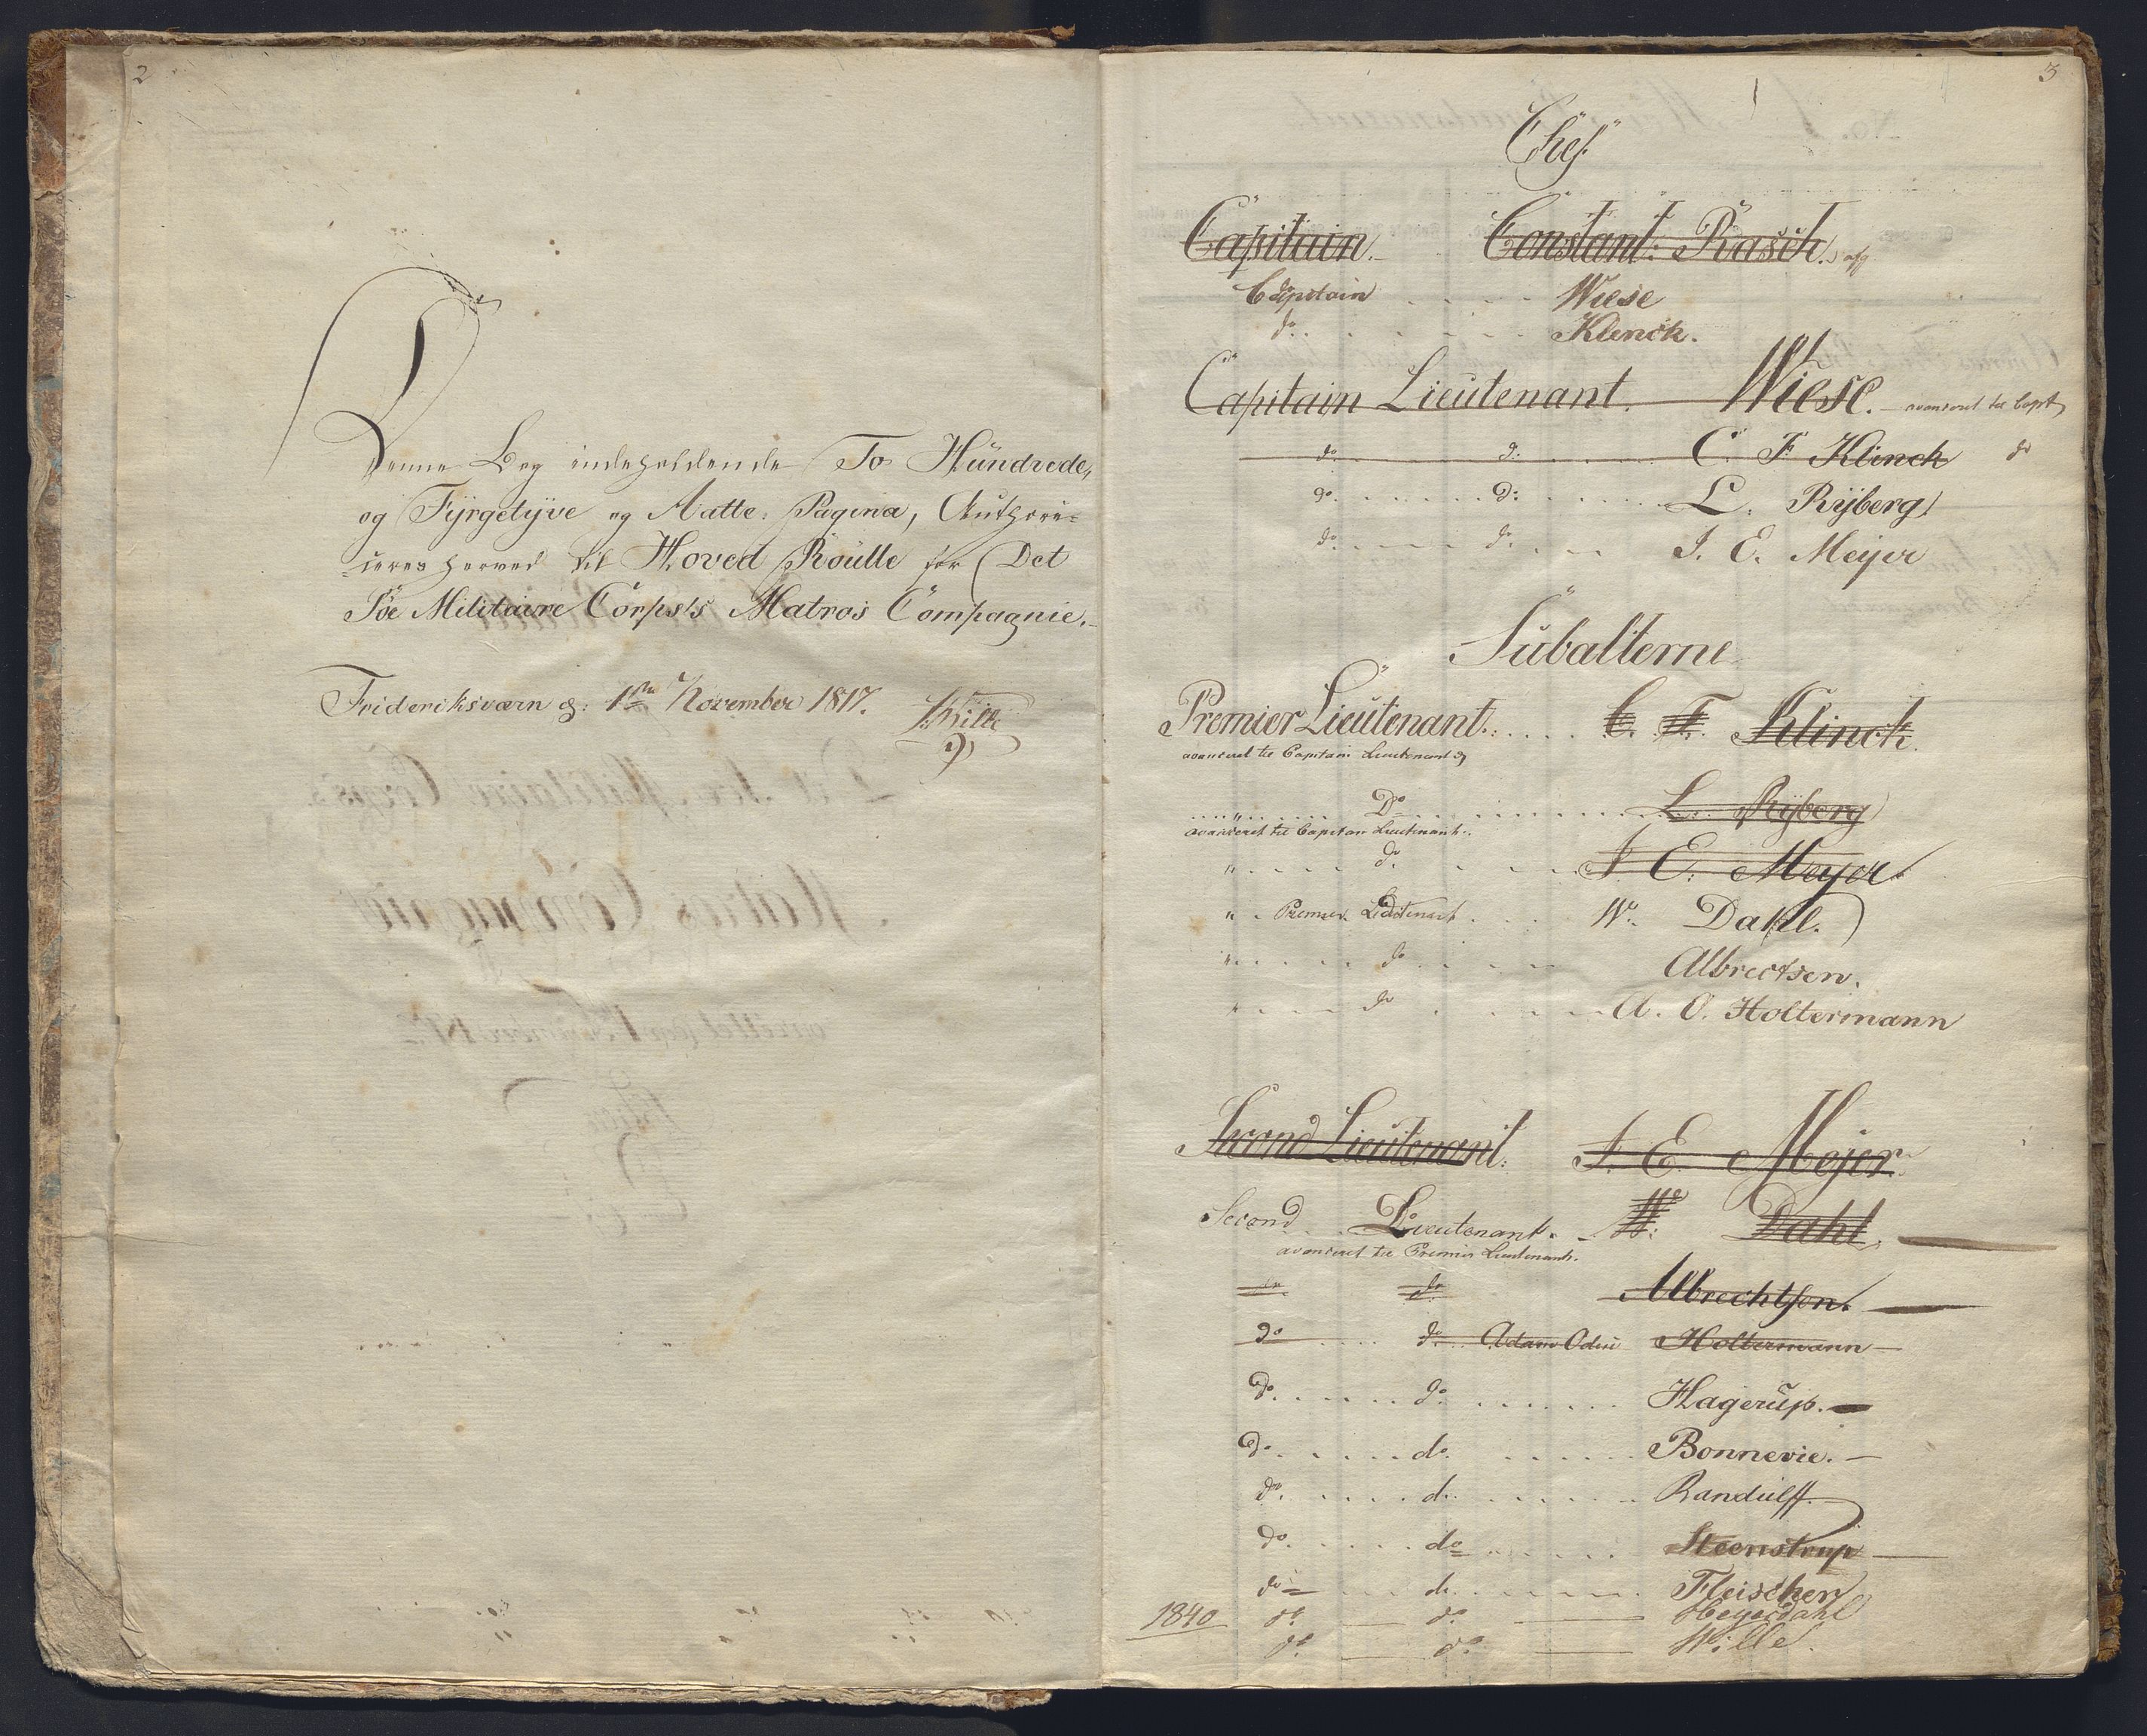 2
Denne Bog indeholdende To Hundrede,
og Fÿrgetÿve og Aatte Pagina, Authori-
-seres herved til Hoved Roulle for Det
Söe Militaire Corps's Matros Compagnie.
Frideriksværn d: 1ste November 1817.
3
Chef
Capitain Constant: Rasch. afg
Capitain Wiese
do Klinck.
Capitain Lieutenant. Wiese. avanceret til Capt
do do C. F Klinck do
do do L. Rÿberg
do do J. E. Meyer
Subalterne
Premier Lieutenant C. F. Klinck
avanceret til Capitain Lieutenant
Do L. Rÿberg
avanceret til Capitain Lieutenant
do J E. Meyer
Premier Lieutenant W. Dahl.
do Albrectsen.
do A. O. Holtermann
Second Lieutenant. J. E. Mejer.
Second Lieutenant. W. Dahl.
avanceret til Premier Lieutenant.
do do Albrechtsen.
do do Adam Odin Holtermann
do do Hagerup.
do do Bonnevie.
do do Randulff.
do do Steenstrup
do do Fleischer
1840 do do Heyerdahl
do do Wille.